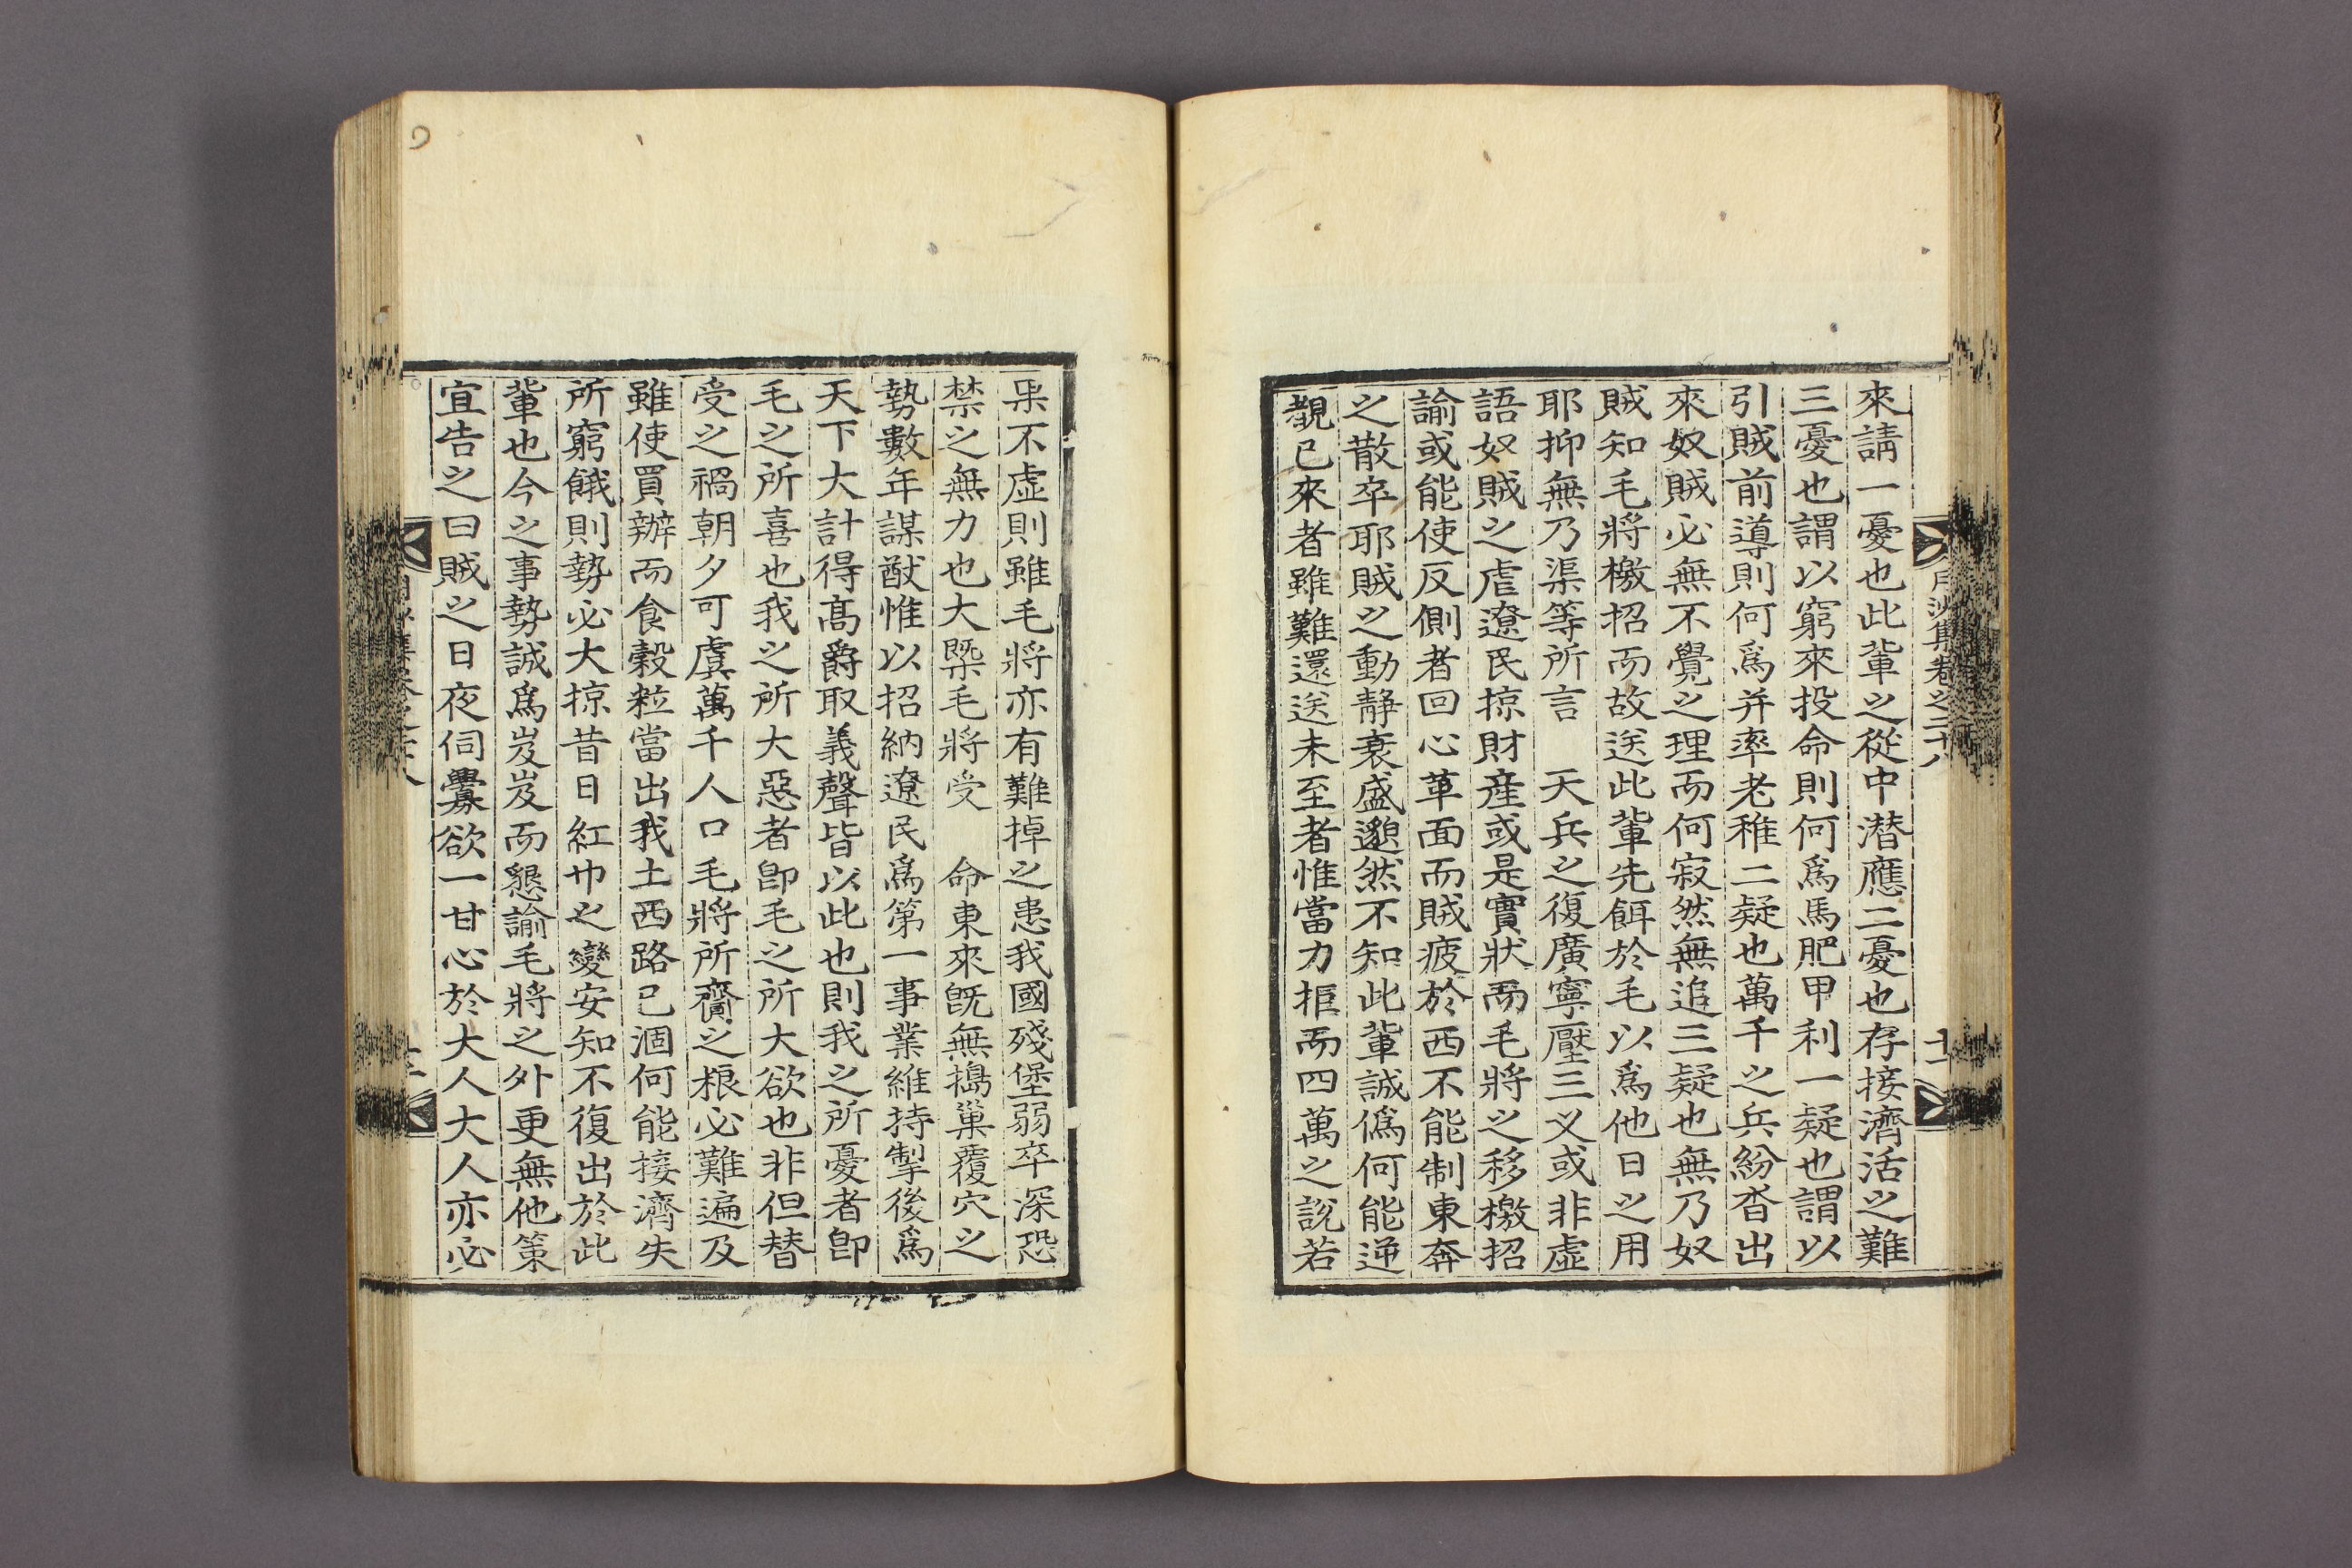 來請一憂也此輩之從中潛應二憂也存接濟活之難
三憂也謂以窮來投命則何爲馬肥甲利一疑也謂以
引賊前導則何爲并率老稚二疑也萬千之兵紛沓出
來奴賊必無不覺之理而何寂然無追三疑也無乃奴
賊知毛將檄招而故送此輩先餌於毛以爲他日之用
耶抑無乃渠等所言 天兵之復廣寧壓三义或非虛
語奴賊之虐遼民掠財産或是實狀而毛將之移檄招
諭或能使反側者回心革面而賊疲於西不能制東奔
之散卒耶賊之動靜衰盛邈然不知此輩誠僞何能逆
覩已來者雖難還送未至者惟當力拒而四萬之說若
果不虛則雖毛將亦有難掉之患我國殘堡弱卒深恐
禁之無力也大槩毛將受 命東來旣無搗巢覆穴之
勢數年謀猷惟以招納遼民爲第一事業維持掣後爲
天下大計得高爵取義聲皆以此也則我之所憂者卽
毛之所喜也我之所大惡者卽毛之所大欲也非但替
受之禍朝夕可虞萬千人口毛將所齎之粮必難遍及
雖使買辦而食穀粒當出我土西路已涸何能接濟失
所窮餓則勢必大掠昔日紅巾之變安知不復出於此
輩也今之事勢誠爲岌岌而懇諭毛將之外更無他策
宜告之曰賊之日夜伺釁欲一甘心於大人大人亦必
月沙集卷之二十八
十一